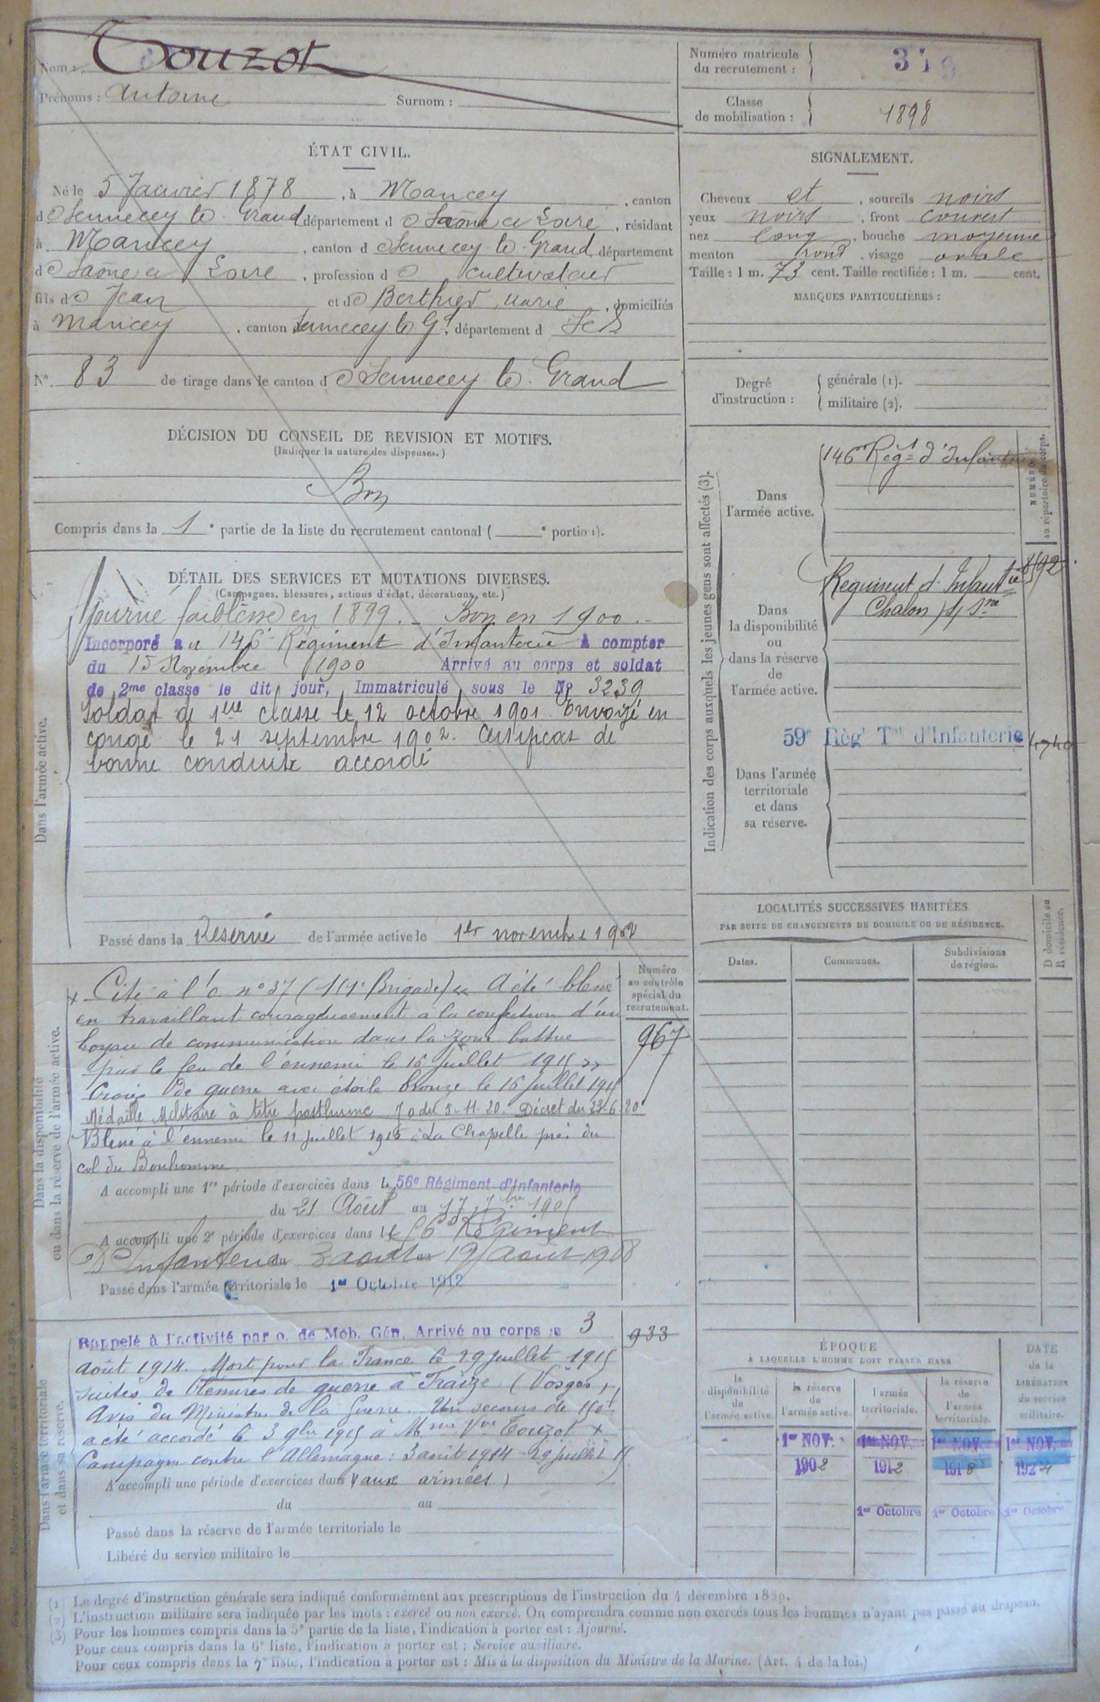 Nom : Touzot
Prénoms : Antoine Surnom :
Numéro matricule du recrutement : 319
Classe de mobilisation : 1898
ÉTAT CIVIL.
Né le 5 Janvier 1878, à Mancey, canton
d Sennecey le Grand département d Saône et Loire, résidant
à Mancey, canton d Sennecey le Grand, département
d Saône et Loire, profession d cultivateur
fils d Jean et d Berthier, Marie, domiciliés
à Mancey, canton Sennecey le Gd, département d S et L
N° 83 de tirage dans le canton d Sennecey le Grand
SIGNALEMENT.
Cheveux et, sourcils noirs
yeux noirs, front couvert
nez long, bouche moyenne
menton rond, visage ovale
Taille : 1 m. 73 cent. Taille rectifiée : 1 m. cent.
MARQUES PARTICULIÈRES :
Degré d'instruction : générale (1).
militaire (2).
DÉCISION DU CONSEIL DE REVISION ET MOTIFS.
(Indiquer la nature des dispenses.)
Bon
Compris dans la 1e partie de la liste du recrutement cantonal ( e portion).
DÉTAIL DES SERVICES ET MUTATIONS DIVERSES.
(Campagnes, blessures, actions d'éclat, décorations, etc.)
Ajourné faiblesse en 1899. - Bon en 1900. -
Incorporé au 146e Régiment d'Infanterie à compter
du 15 Novembre 1900 Arrivé au corps et soldat
de 2me classe le dit jour, Immatriculé sous le N° 3239
Soldat de 1ère classe le 12 octobre 1901. Envoyé en
congé le 21 septembre 1902. Certificat de
bonne conduite accordé
Dans l'armée active.
Passé dans la Réserve de l'armée active le 1er novembre 1902
Indication des corps auxquels les jeunes gens sont affectés (3).
NUMÉRO au répertoire du corps.
Dans l'armée active.
146e Régt d'Infanterie
Dans la disponibilité ou dans la réserve de l'armée active.
Régiment d'Infantie
Chalon s/ Sne
Dans l'armée territoriale et dans sa réserve.
59e Régt Tal d'Infanterie
LOCALITÉS SUCCESSIVES HABITÉES
PAR SUITE DE CHANGEMENTS DE DOMICILE OU DE RÉSIDENCE.
Dates. Communes. Subdivisions de région. D domicile ou R résidence.
Dans la disponibilité ou dans la réserve de l'armée active.
Numéro au contrôle spécial du recrutement.
967
x Cité à l'o. n° 37 ( Brigade) « A été blessé
en travaillant courageusement à la confection d'un
boyau de communication dans la zone battue
par le feu de l'ennemi le 16 juillet 1915 »
Croix de guerre avec étoile bronze le 16 juillet 1915
Médaille Militaire à titre posthume J.O. du 5-11-20.
Blessé à l'ennemi le 11 juillet 1915 à La Chapelle près du
col du Bonhomme
A accompli une 1re période d'exercices dans le 56e Régiment d'Infanterie
du 21 Août au 17 7bre 1905
A accompli une 2e période d'exercices dans le 56e Régiment
D'Infanterie du 3 août au 19 Août 1908
Passé dans l'armée territoriale le 1er Octobre 1912
Dans l'armée territoriale et dans sa réserve.
933
Rappelé à l'activité par o. de Mob. Gén. Arrivé au corps le 3
août 1914. Mort pour la France le 29 juillet 1915
suites de blessures de guerre à Fraize (Vosges)
Avis du Ministre de la Guerre. Un secours de 150
a été accordé le 3 9bre 1915 à Mme Vve Touzot x
Campagne contre l'Allemagne : 3 août 1914 - 29 juillet 15
A accompli une période d'exercices dans (aux armées)
du au
Passé dans la réserve de l'armée territoriale le
Libéré du service militaire le
ÉPOQUE
A LAQUELLE L'HOMME DOIT PASSER DANS
DATE de la LIBÉRATION du service militaire.
la disponibilité de l'armée active. la réserve de l'armée active. l'armée territoriale. la réserve de l'armée territoriale.
1er NOV. 1er NOV. 1er NOV. 1er NOV.
1902 1912 1918 1924
1er Octobre 1er Octobre 1er Octobre
(1) Le degré d'instruction générale sera indiqué conformément aux prescriptions de l'instruction du 4 décembre 1889.
(2) L'instruction militaire sera indiquée par les mots : exercé ou non exercé. On comprendra comme non exercés tous les hommes n'ayant pas passé au drapeau.
(3) Pour les hommes compris dans la 5e partie de la liste, l'indication à porter est : Ajourné.
Pour ceux compris dans la 6e liste, l'indication à porter est : Service auxiliaire.
Pour ceux compris dans la 7e liste, l'indication à porter est : Mis à la disposition du Ministre de la Marine. (Art. 4 de la loi.)